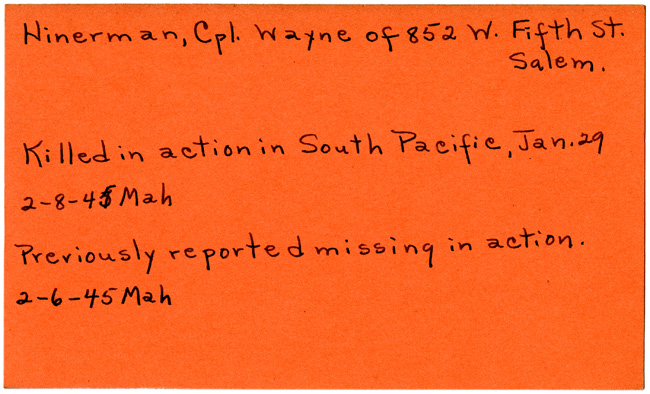 Hinerman, Cpl. Wayne of 852 W. Fifth St.
Salem.
Killed in action in South Pacific, Jan. 29
2-8-45 Mah
Previously reported missing in action.
2-6-45 Mah